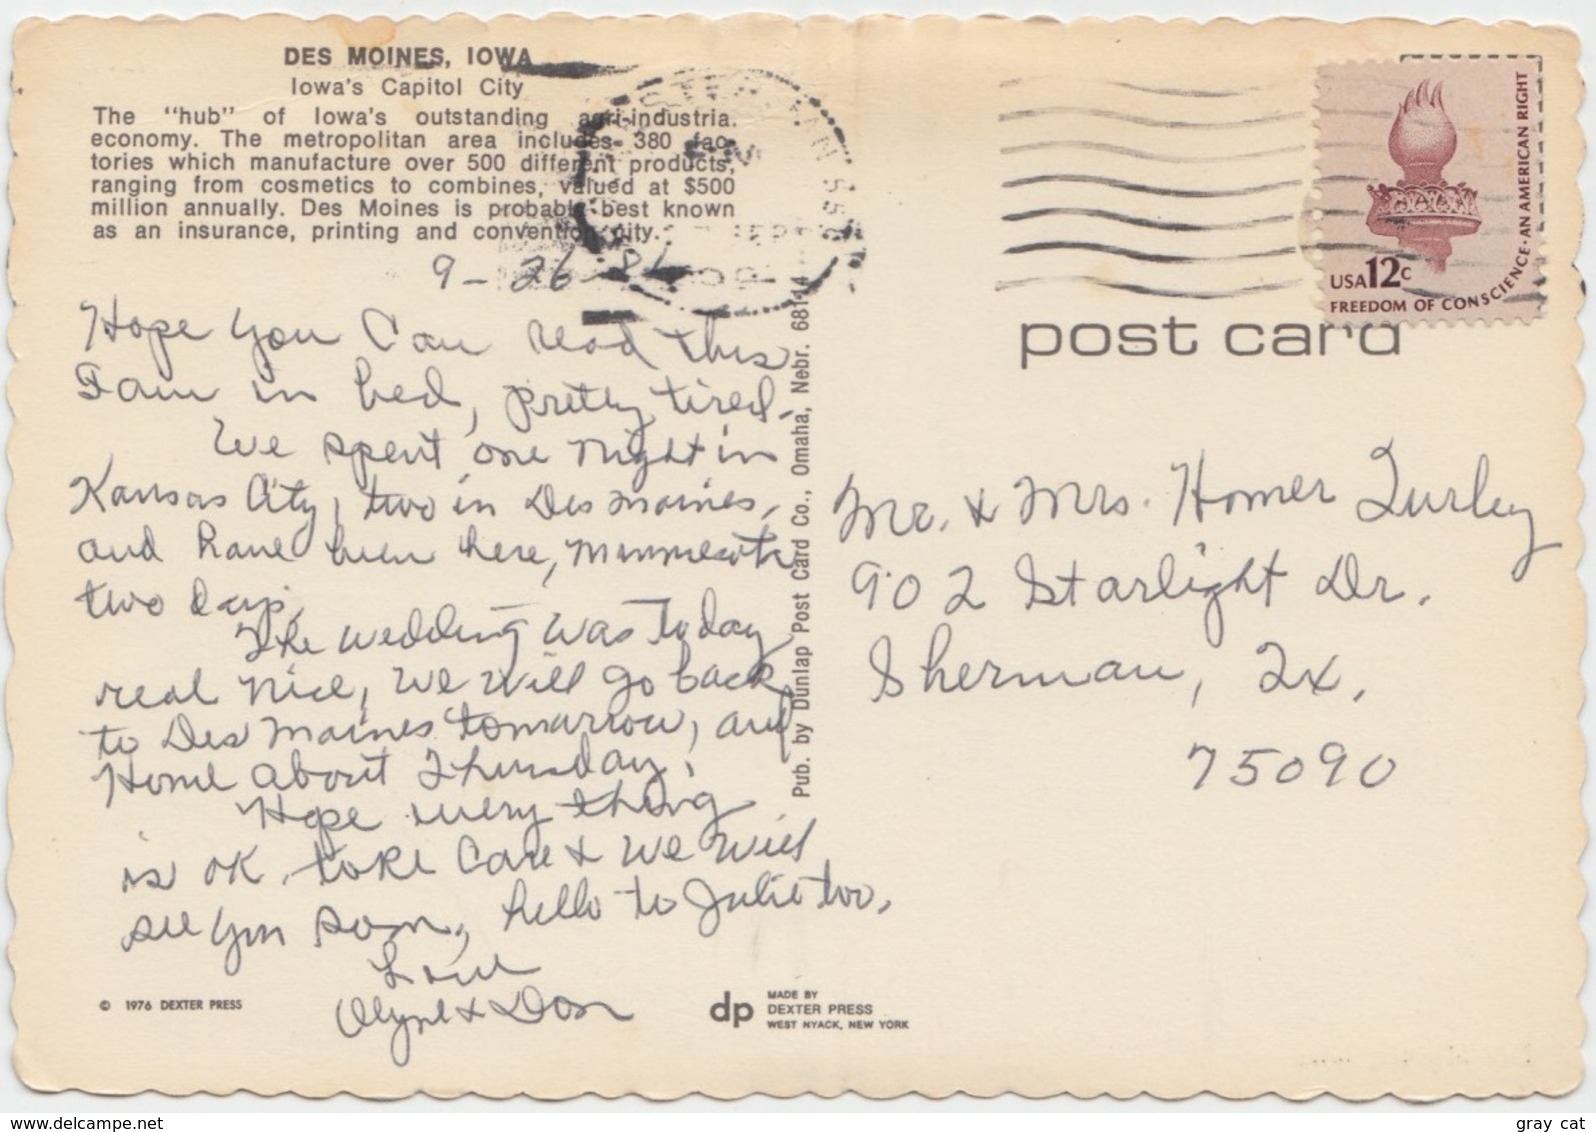 DES MOINES, IOWA
Iowa's Capitol City
The "hub" of Iowa's outstanding agri-industria.
economy. The metropolitan area includes 380 fac-
tories which manufacture over 500 different products,
ranging from cosmetics to combines, valued at $500
million annually. Des Moines is probably best known
as an insurance, printing and convention city.
9-26
Hope you can read this
I am in bed, pretty tired.
We spent one night in
Kansas City, two in Des Moines,
and have been here, Minnesota
two days.
The wedding was today
real nice, we will go back
to Des Moines tomarrow, and
Home about Thursday.
Hope every thing
is OK. take care & we will
see you soon, hello to Julie too.
Love
& Don
© 1976 DEXTER PRESS
Pub. by Dunlap Post Card Co., Omaha, Nebr. 68144
dp
MADE BY
DEXTER PRESS
WEST NYACK, NEW YORK
USA 12c
FREEDOM OF CONSCIENCE·AN AMERICAN RIGHT
post card
Mr. & Mrs. Homer Turley
902 Starlight Dr.
Sherman, Tx.
75090
gray cat